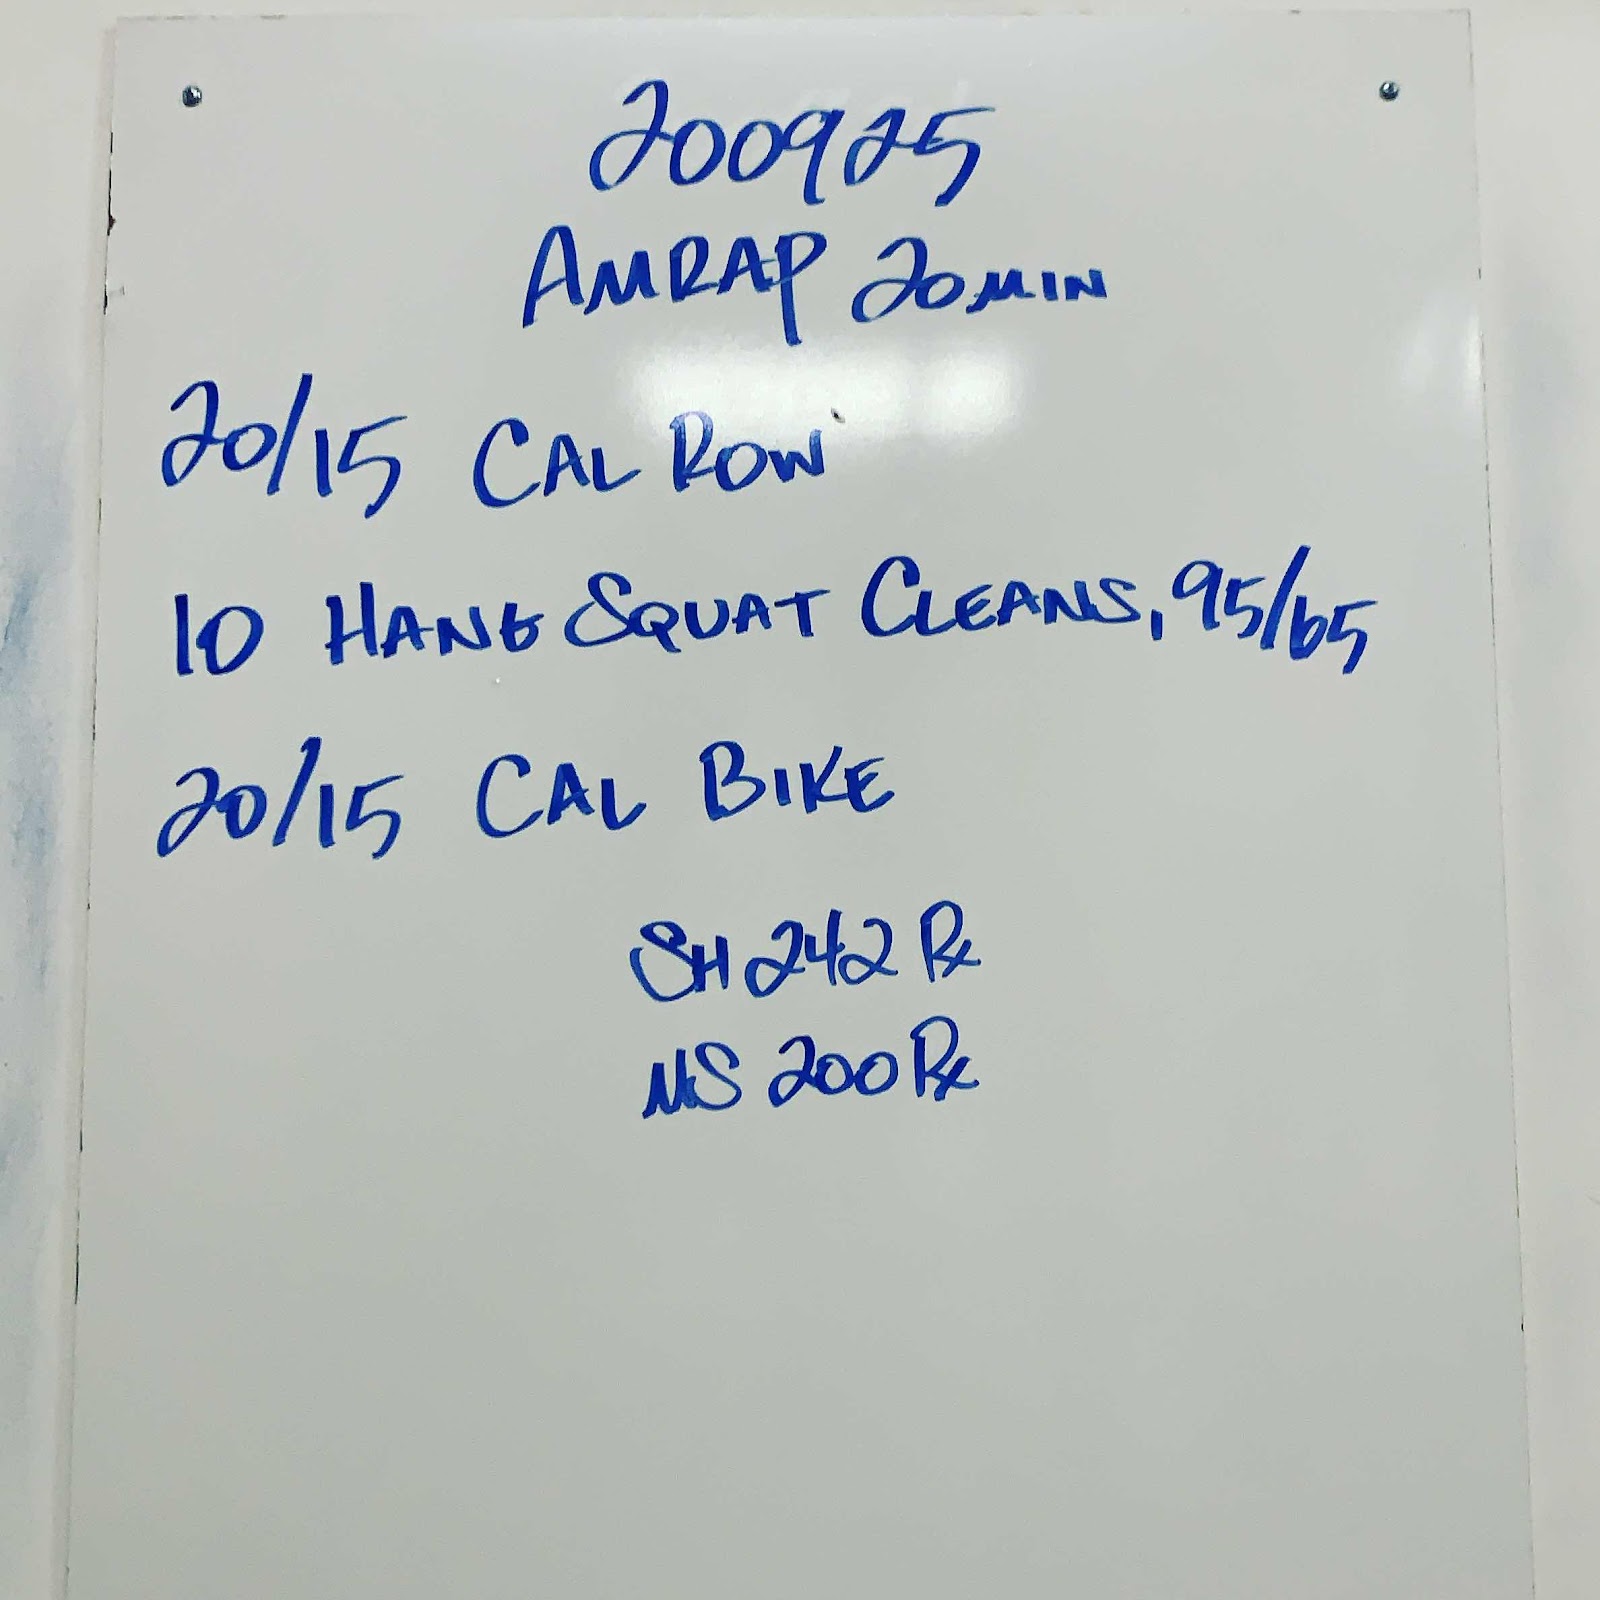 200925
AMRAP 20 MIN
20/15 CAL ROW
10 HANG SQUAT CLEANS, 95/65
20/15 CAL BIKE
SH 242 Rx
MS 200 Rx